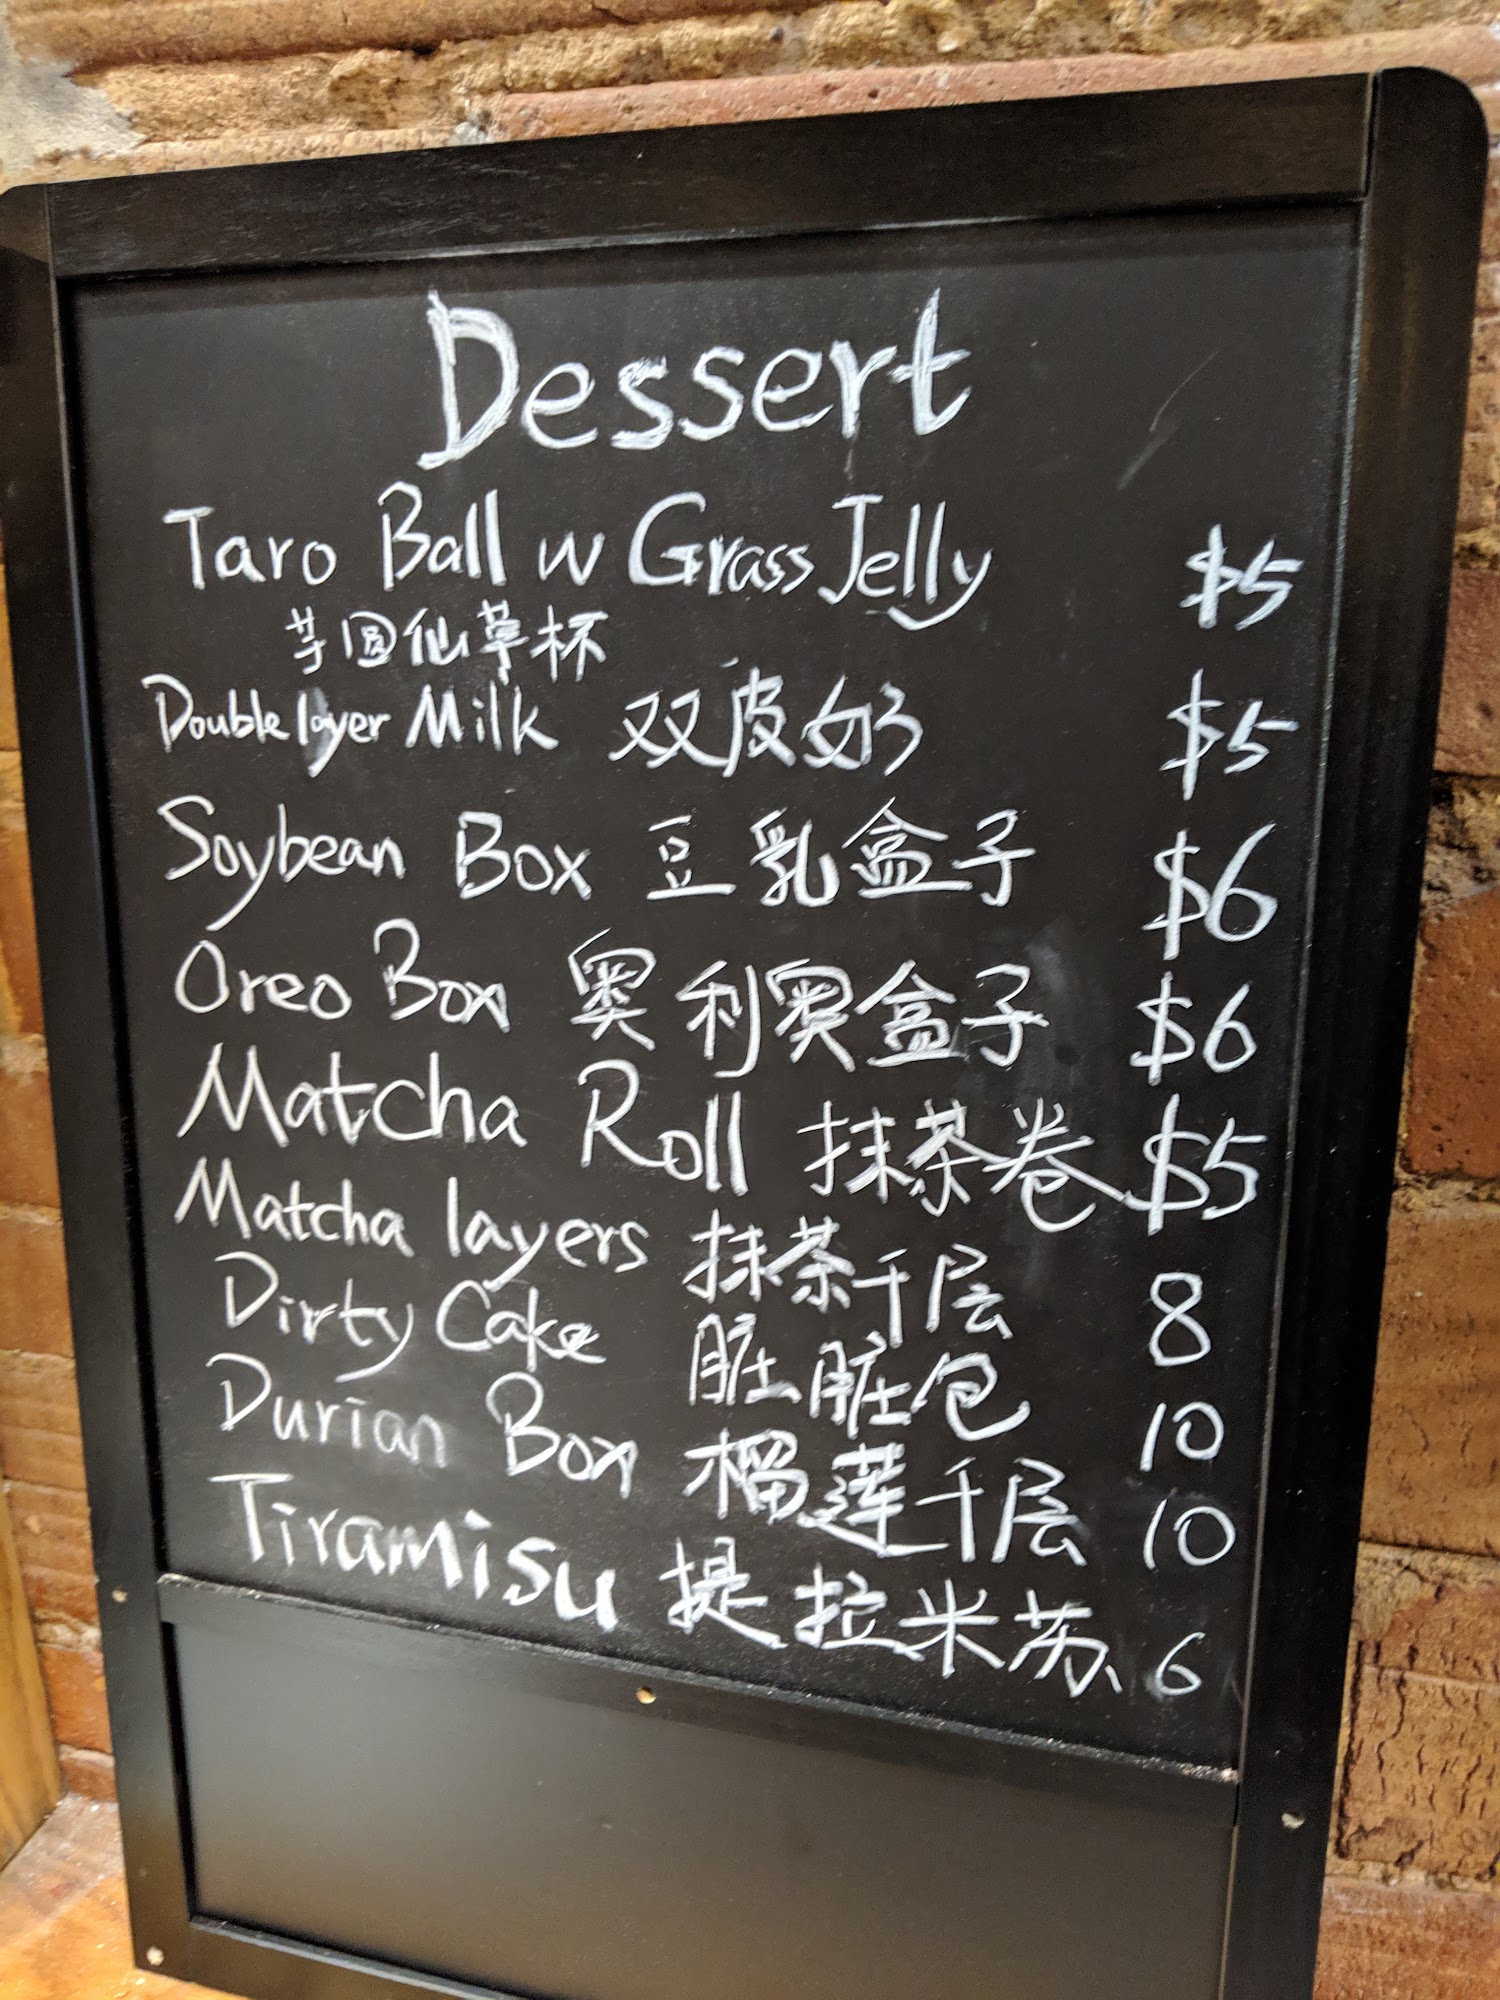 Dessert
Taro Ball w Grass Jelly $5
芋圆仙草杯
Double layer Milk 双皮奶 $5
Soybean Box 豆乳盒子 $6
Oreo Box 奥利奥盒子 $6
Matcha Roll 抹茶卷 $5
Matcha layers 抹茶千层 8
Dirty Cake 脏脏包 10
Durian Box 榴莲千层 10
Tiramisu 提拉米苏 6